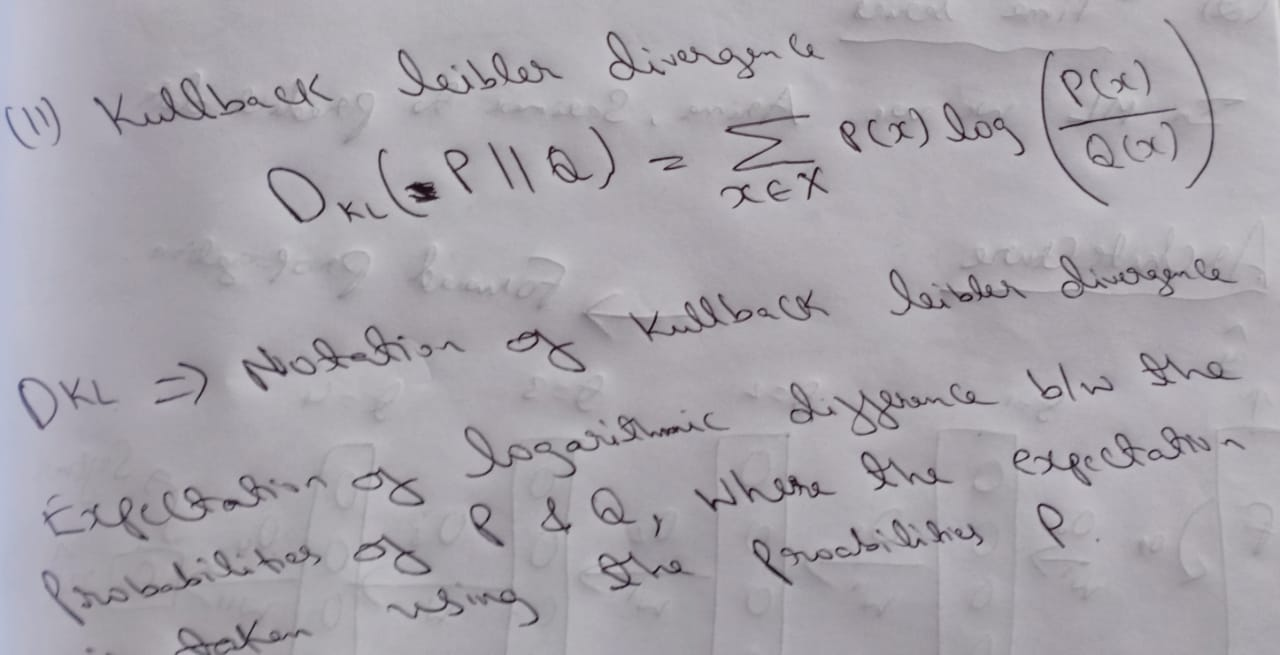 (11) Kullback leibler divergence
DKL(P || Q) = ∑x∈X P(x) log (P(x)/Q(x))
DKL => Notation of Kullback leibler divergence
Expectation of logarithmic difference b/w the
Probabilities of P & Q, where the expectation
is taken using the Proabilities P.